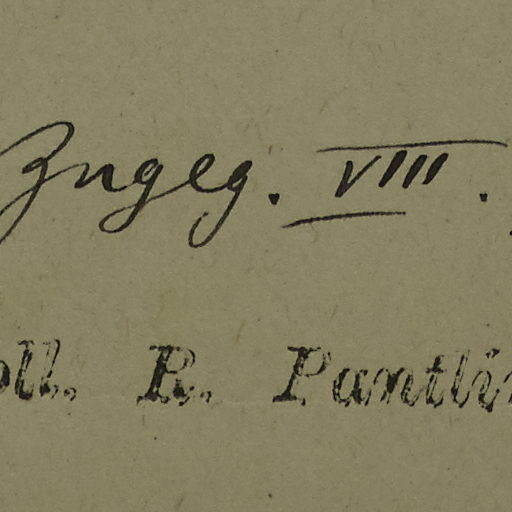 Zngeg. VIII.
oll. R. Pantli